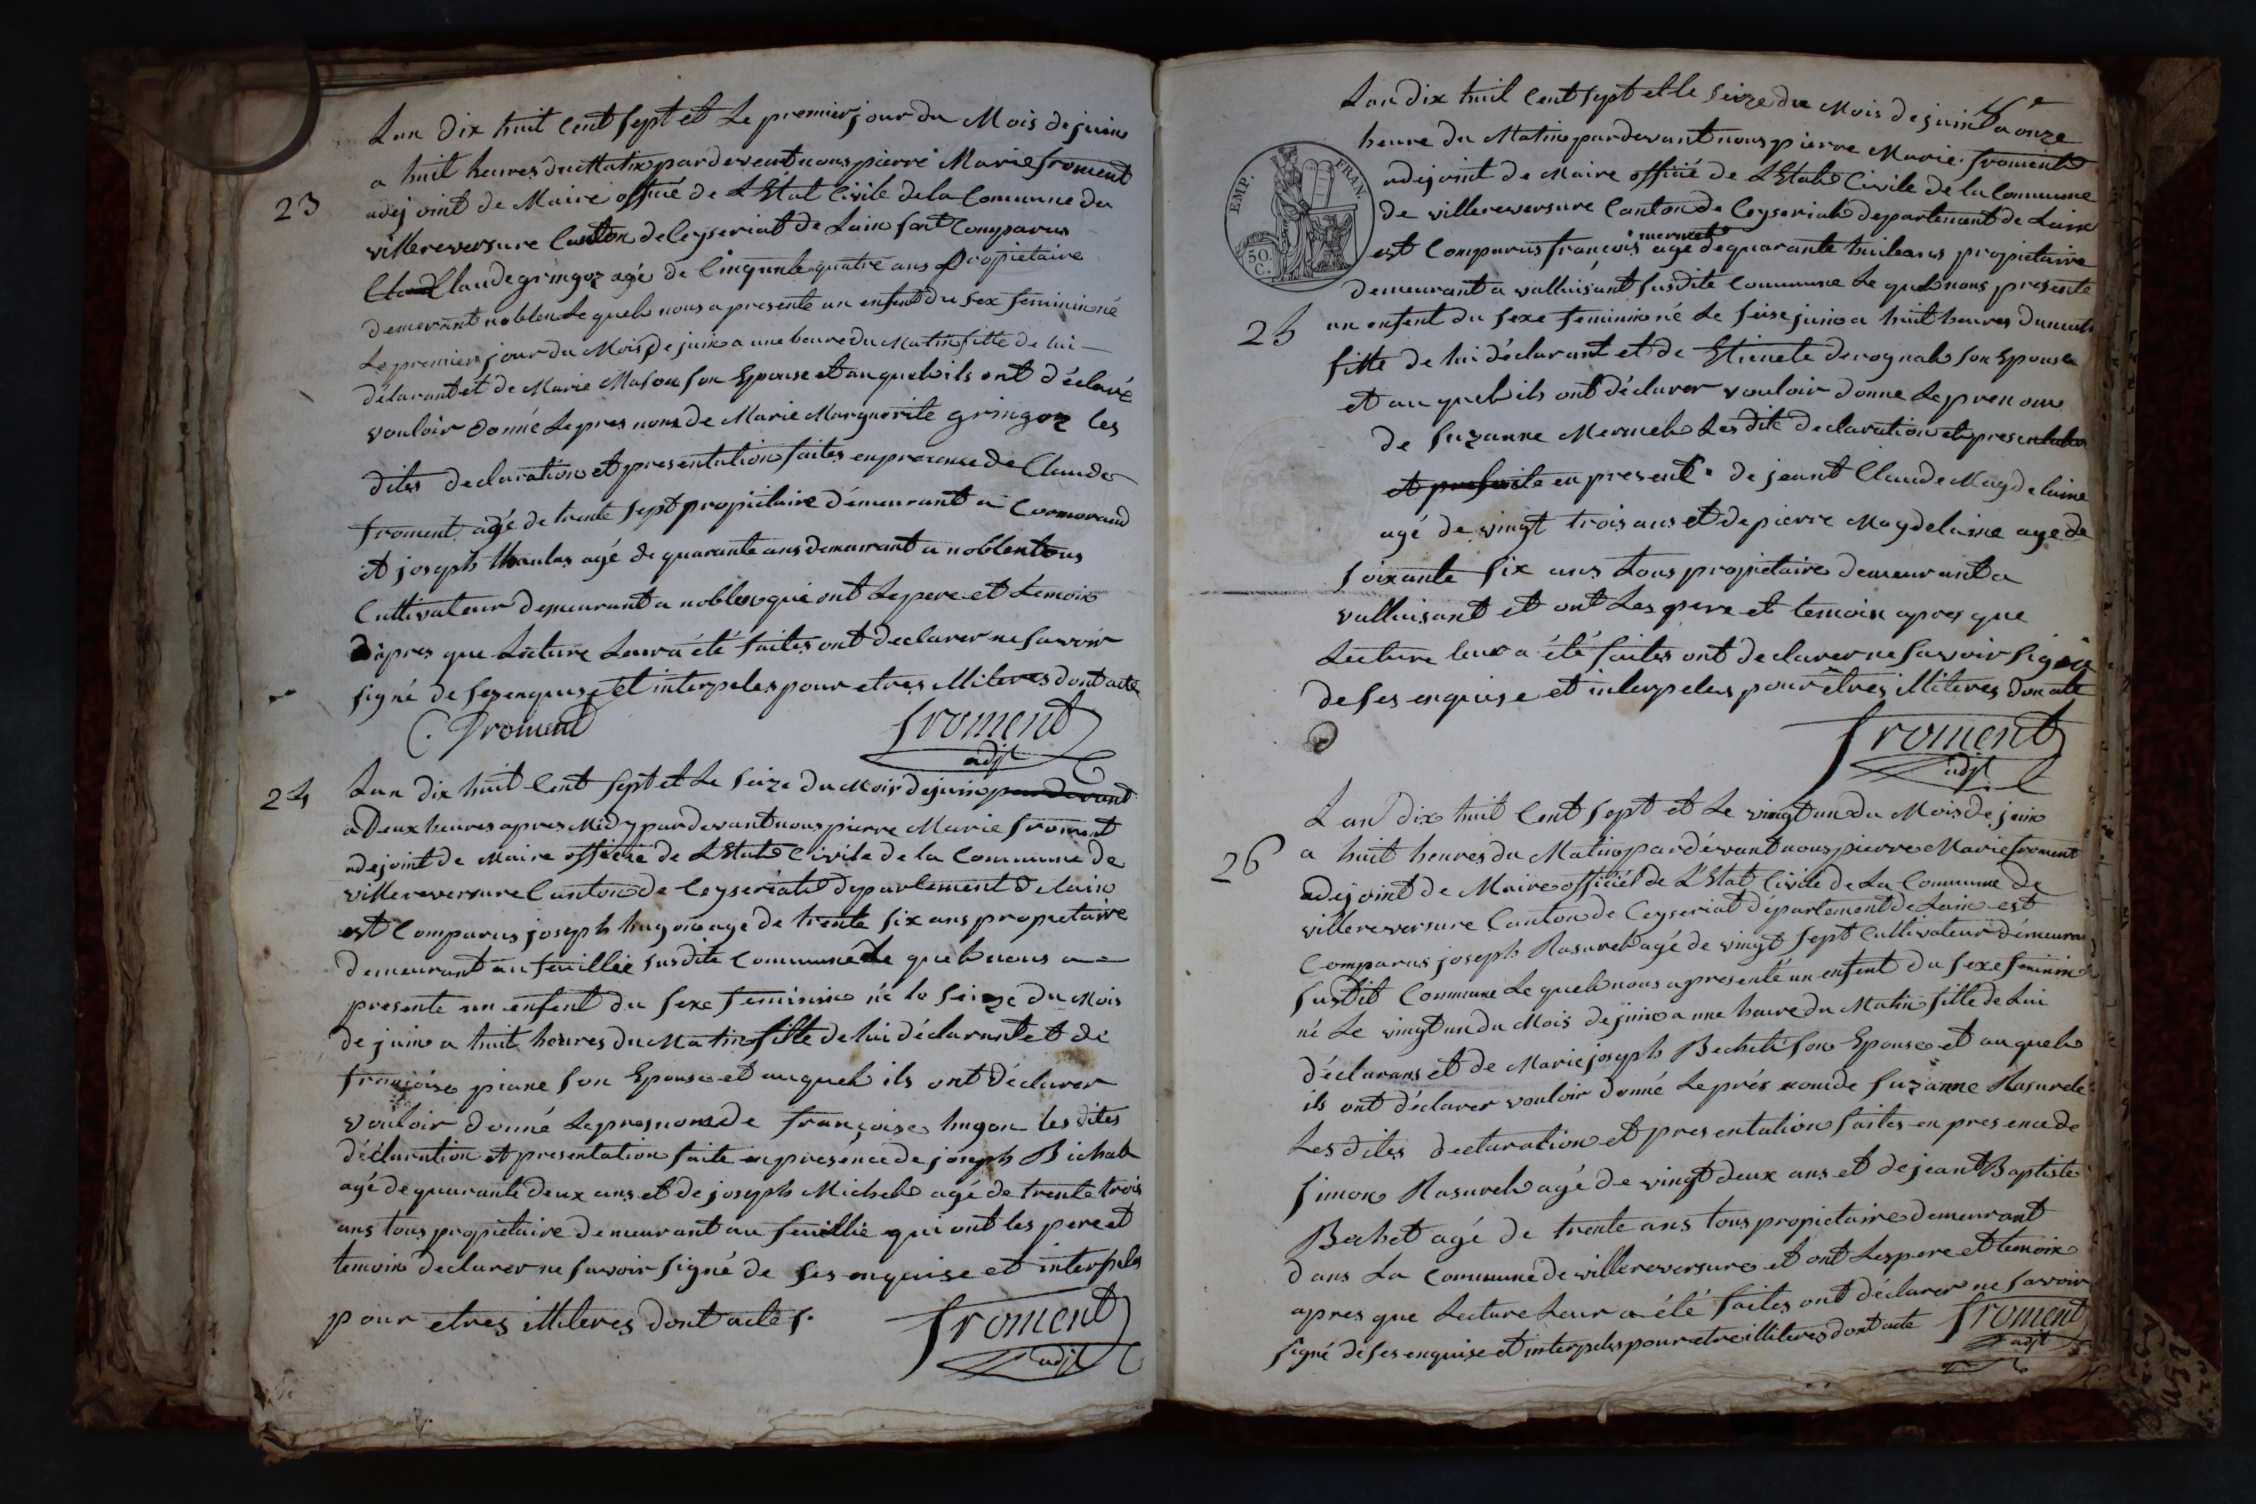 23
Lan dix huit Cent sept et Le premier jour du Mois de juin
a huit heures du Matin pardevent nous pierre Marie froment
adejoint de Maire officié de LEtat Civile dela Comunne du
villereversure Canton de Ceyseriat de Lain sont Comparus
Claude gringoz agé de Cinqunte quatre ans propietaire
demeurant noblen Le quel nous a presente un enfent du sex feminin né
Le premier jour du Mois de juin a une heure du Matin fille de lui
déclarant et de Marie Mason son Epouse et auquel ils ont déclaré
vouloir donné Le pres nom de Marie Marguerite gringoz les
dites declaration et presentation faites en presence de Claude
froment agé de trente sept propietaire démeurant a Cormorand
et joseph agé de quarante ans demeurant a noblen tous
Cultivateur demeurant a noblen qui ont Le pere et témoin
dápres que Lecture Leur a été faites ont declarer ne savoir
signé de ses enquise et interpeles pour etres illiteres dont acte
C. froment froment
adjt
24
Lan dix huit Cent sept et Le seize du Mois de juin pardevant
a Deux heures apres Midy pardevant nous pierre Marie froment
adejoint de Maire officié de LEtat Civile de la Commune de
villereversure Canton de Ceyseriat departement de lain
est Comparus joseph hugon age de trente six ans propietaire
demeurant au feuillée susdite Commune Le quel nous a
presente un enfent du sexe feminin né le seize du Mois
de juin a huit heures du Matin fille de lui déclarant et de
françoise piane son Epouse et auquel ils ont déclarer
vouloir donné Le pres nom de françoise hugon les dites
déclaration et presentation faite en presence de joseph Bichat
agé de quarante deux ans et de joseph Michel agé de trente trois
ans tous propietaire demeurant au feuillie qui ont les pere et
temoin declarer ne savoir signé de ses enquise et interpeles
pour etres illiteres dont actes.
froment
adjt
Lan dix huit Cent sept et le seize du Mois de juin a onze
heure du Matin pardevant nous pierre Marie froment
adejoint de Maire officié de LEtat Civile de la Commune
de villereversure Canton de Ceyseriat departement de Lain
mermet
est Comparus francois agé de quarante huit ans propietaire
demeurant a valluisant susdite Commune Le quel nous presente
EMP. FRAN.
50 C.
25
un enfent du sexe feminin né Le seise juin a huit heures du
fille de lui déclarant et de Etienete son Epouse
et auquel ils ont déclarer vouloir donne Le prenom
de Suzanne Mermet Les dite declaration et presentation
en present de jeant Claude Magdelaine
agé de vingt trois ans et de pierre Magdelaine age de
soixante six ans tous propietaire demeurant a
valluisant et ont Les pere et temoin apres que
Lecture leur a été faites ont declarer ne savoir signé
de ses enquise et interpeles pour êtres illiteres dont acte
froment
adjt
26
Lan dix huit Cent sept et Le vingt un du Mois de juin
a huit heures du Matin pardévant nous pierre Marie froment
adejoint de Maire officiét de LEtat Civile de La Commune de
villereversure Canton de Ceyseriat département de Lain est
Comparus joseph Rasurel agé de vingt sept Cultivateur démeurant
susdit Commune Le quel nous a presenté un enfent du sexe feminin
né Le vingt un du Mois de juin a une heure du Matin fille de Lui
déclarans et de Marie joseph Bechet son Epouse et auquel
ils ont déclarer vouloir donné Le prés nom de suzanne Rasurele
Les dites declaration et presentation faites en presence de
simon Rasurel agé de vingt deux ans et de jeant Baptiste
Bechet agé de trente ans tous propietaire demeurant
dans La Commune de villereversure et ont Les pere et temoin
apres que Lecture Leur a été faites ont déclarer ne savoir
signé de ses enquise et interpeles pour etre illiteres dont acte froment
adjt